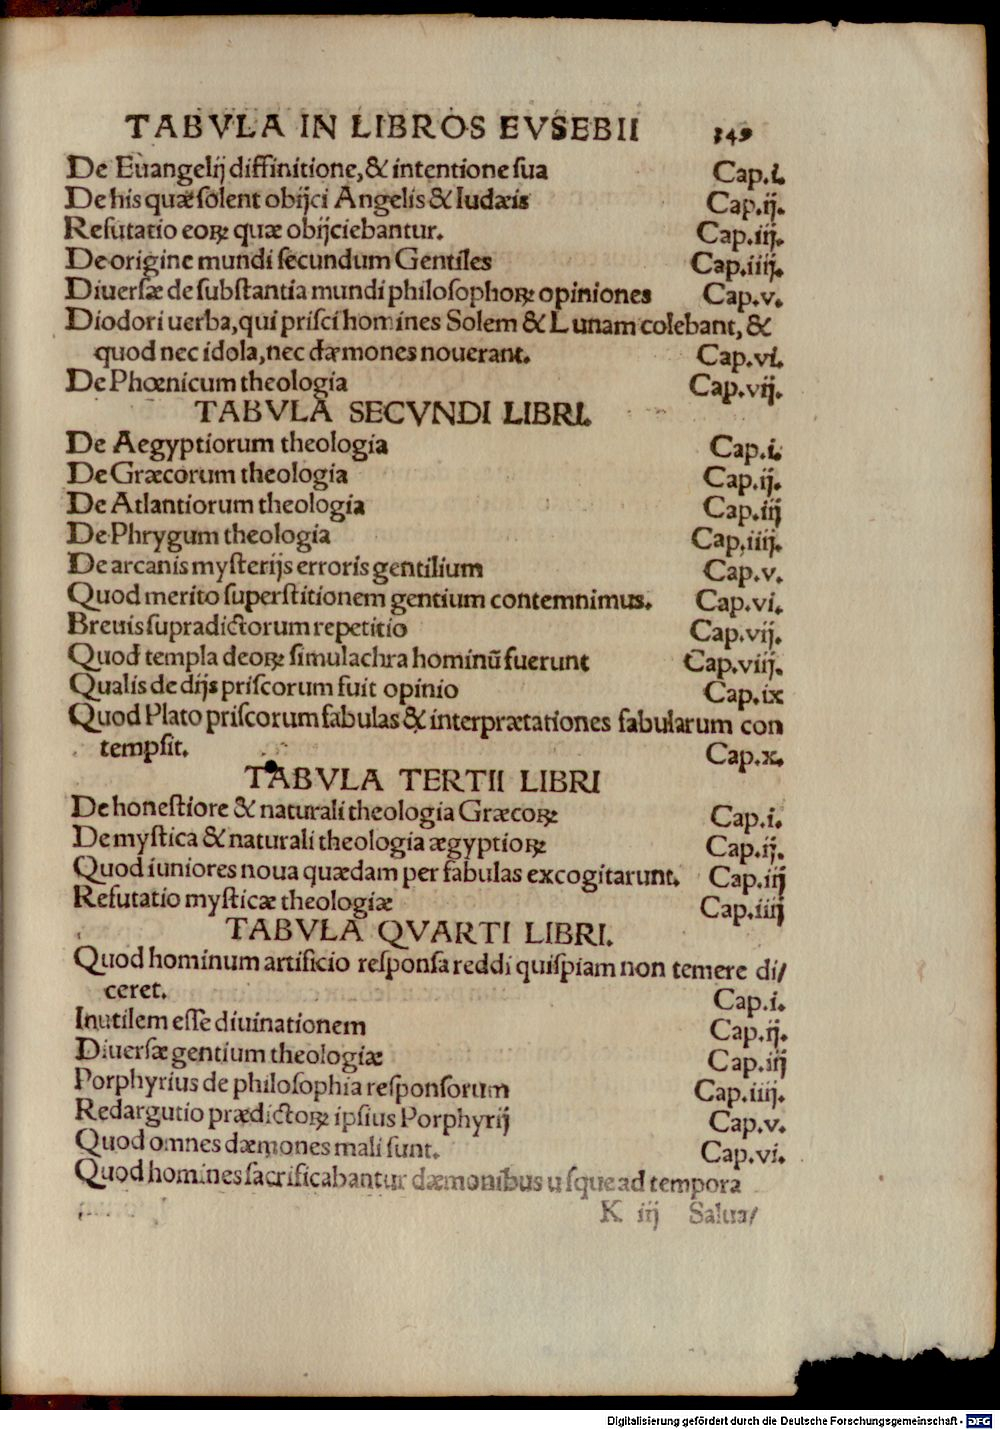 TABVLA IN LIBROS EVSEBII 149
De Euangelij diffinitione, & intentione sua Cap.i.
De his quæ solent obijci Angelis & Iudæis Cap.ij.
Refutatio eoꝝ quæ obijciebantur. Cap.iij.
De origine mundi secundum Gentiles Cap.iiij.
Diuersæ de substantia mundi philosophoꝝ opiniones Cap.v.
Diodori uerba, qui prisci homines Solem & Lunam colebant, &
quod nec idola, nec dæmones nouerant. Cap.vi.
De Phœnicum theologia Cap.vij.
TABVLA SECVNDI LIBRI.
De Aegyptiorum theologia Cap.i.
De Græcorum theologia Cap.ij.
De Atlantiorum theologia Cap.iij
De Phrygum theologia Cap.iiij.
De arcanis mysterijs erroris gentilium Cap.v.
Quod merito superstitionem gentium contemnimus. Cap.vi.
Breuis supradictorum repetitio Cap.vij.
Quod templa deoꝝ simulachra hominū fuerunt Cap.viij.
Qualis de dijs priscorum fuit opinio Cap.ix
Quod Plato priscorum fabulas & interprætationes fabularum con
tempsit. Cap.x.
TABVLA TERTII LIBRI
De honestiore & naturali theologia Græcoꝝ Cap.i.
De mystica & naturali theologia ægyptioꝝ Cap.ij.
Quod iuniores noua quædam per fabulas excogitarunt. Cap.iij
Refutatio mysticæ theologiæ Cap.iiij
TABVLA QVARTI LIBRI.
Quod hominum artificio responsa reddi quispiam non temere di/
ceret. Cap.i.
Inutilem esse diuinationem Cap.ij.
Diuersæ gentium theologiæ Cap.iij
Porphyrius de philosophia responsorum Cap.iiij.
Redargutio prædictoꝝ ipsius Porphyrij Cap.v.
Quod omnes dæmones mali sunt. Cap.vi.
Quod homines sacrificabantur dæmonibus usque ad tempora
K iij Salua/
Digitalisierung gefördert durch die Deutsche Forschungsgemeinschaft - DFG